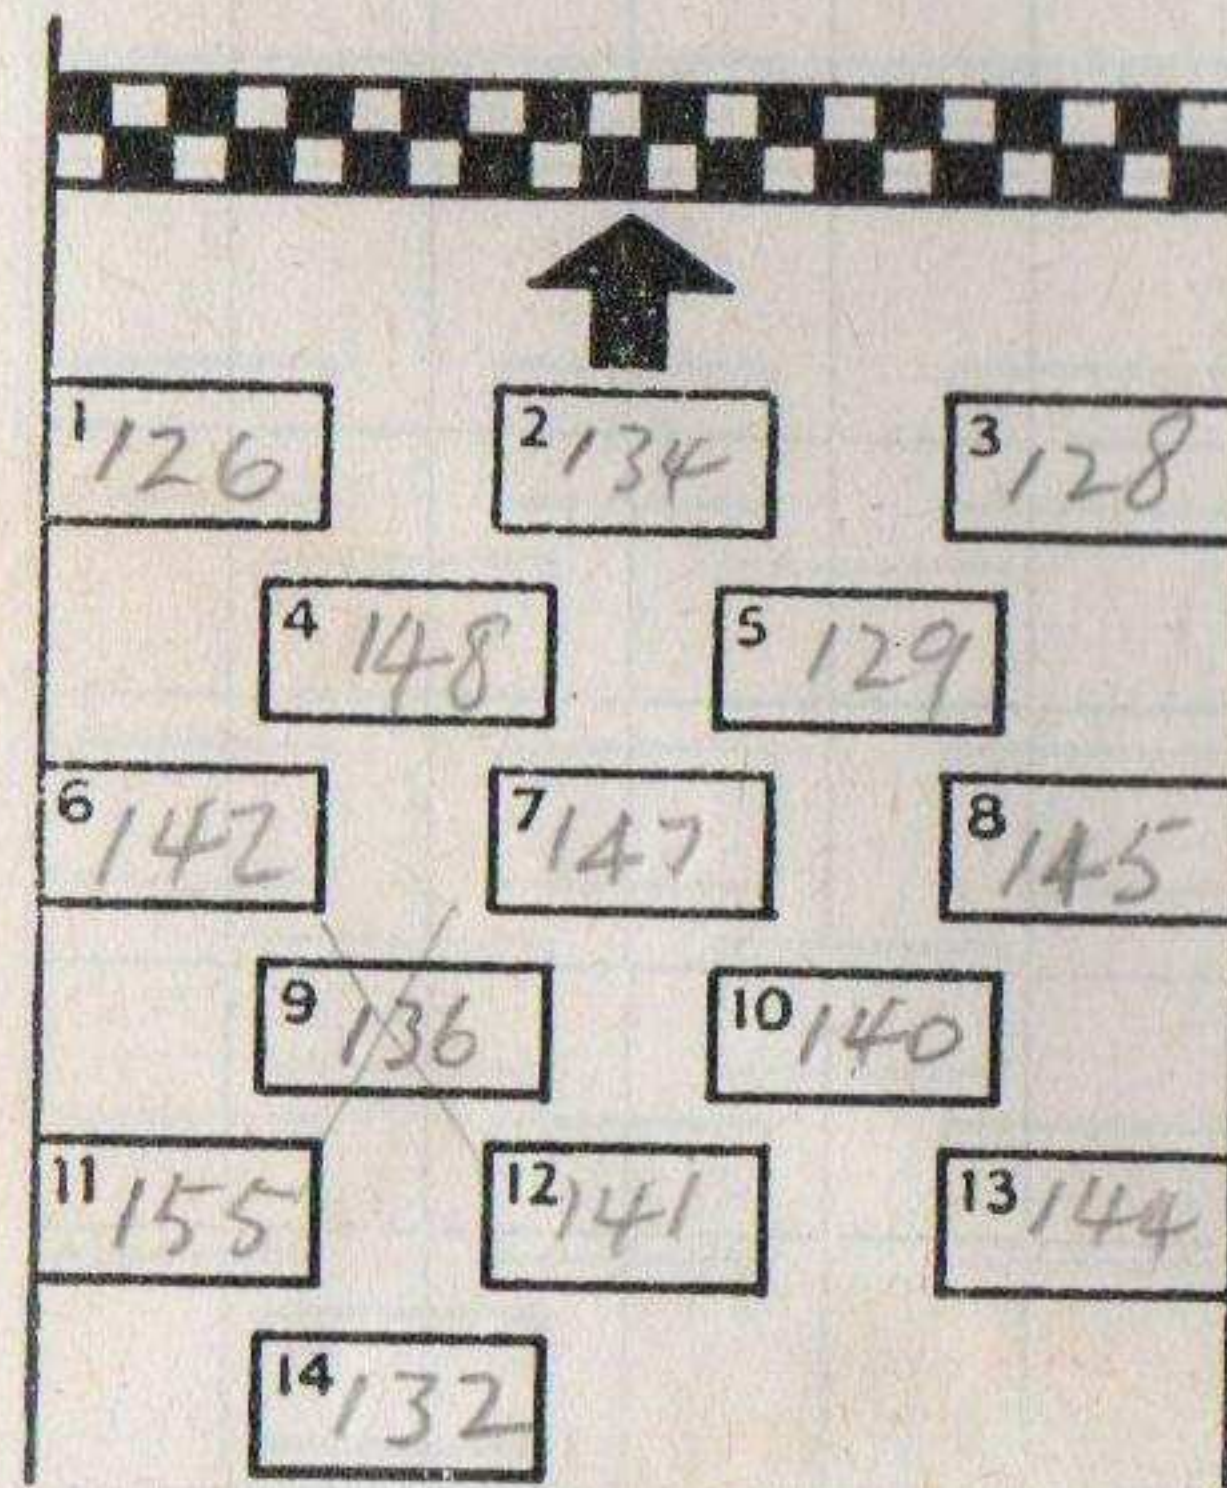 1 126 2 134 3 128
4 148 5 129
6 142 7 147 8 145
9 136 10 140
11 155 12 141 13 144
14 132